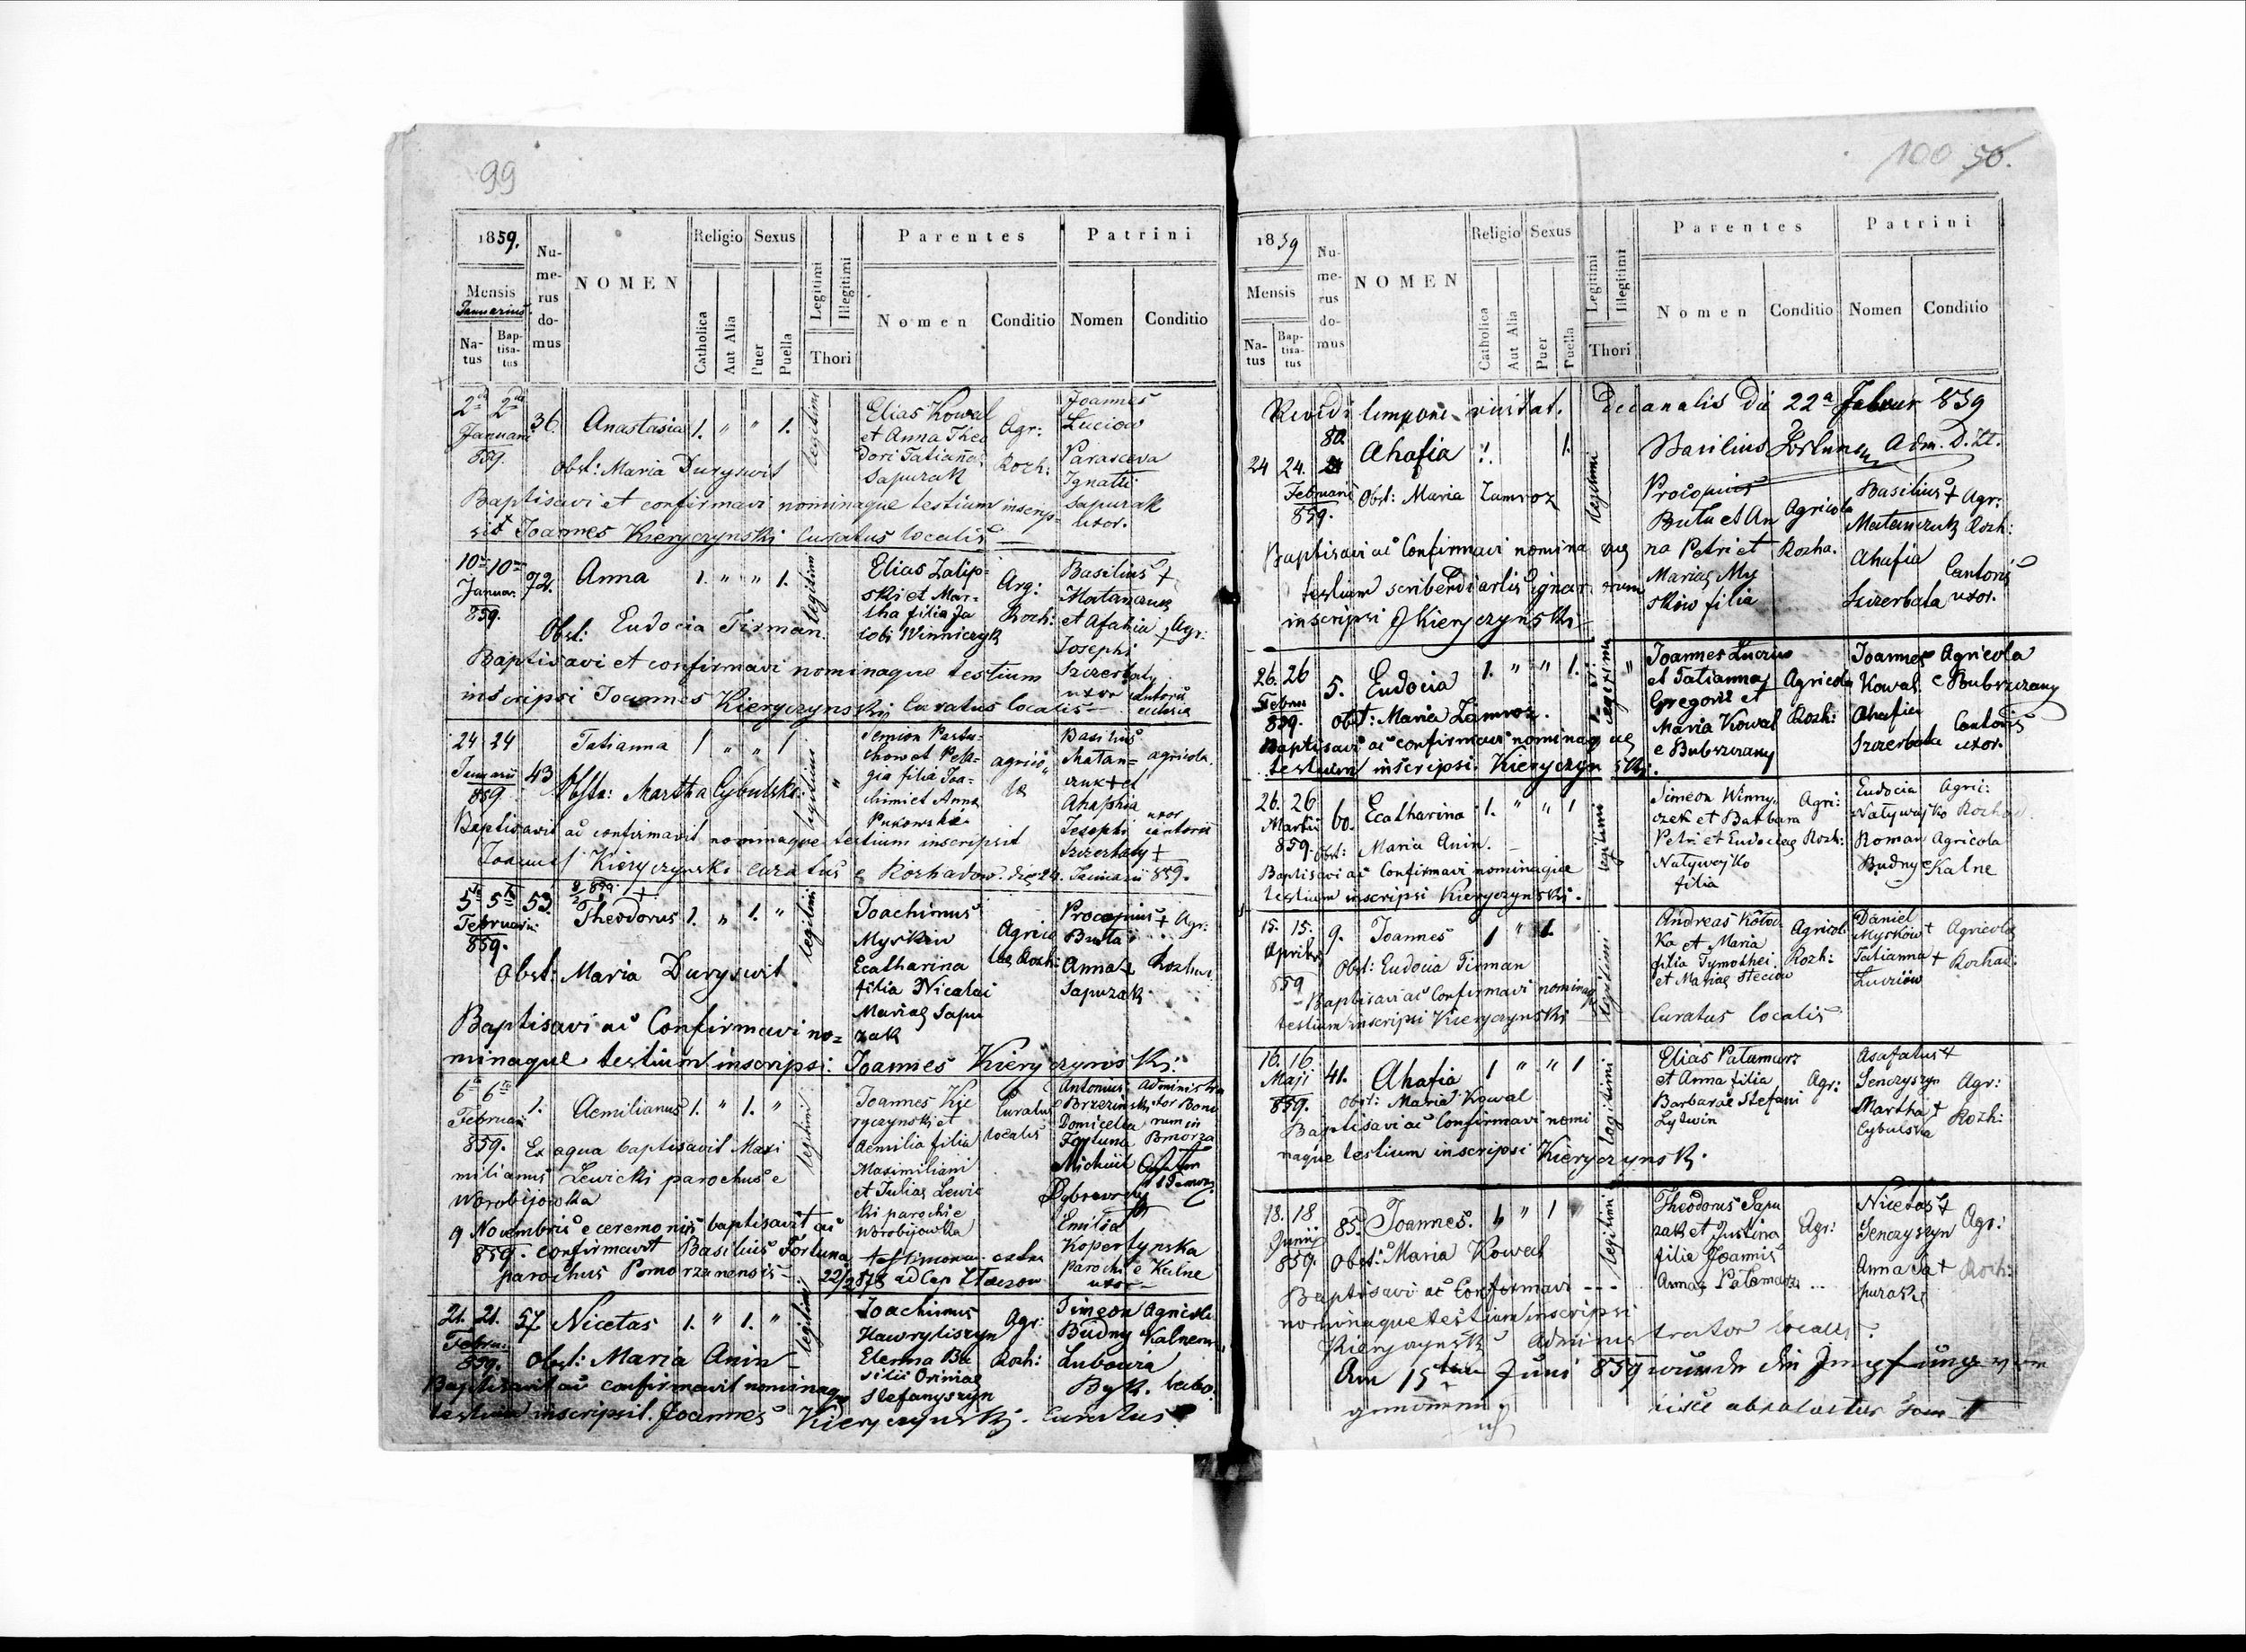 99
1859.
Numerus domus
NOMEN
Religio
Sexus
Legitimi
Illegitimi
Thori
Parentes
Patrini
Mensis
Januarius
Natus
Baptisatus
Catholica
Aut Alia
Puer
Puella
Nomen
Conditio
Nomen
Conditio
2da 2da 36. Anastasia 1. " " 1. legitimi
Januarii
859.
Obst: Maria Duryswit
Elias Kowal
et Anna Theo
dori Tatiannae
Sapuzak
Agr:
Rozh:
Joannes
Luciow
Parasceva
Ignatii
Sapuzak
uxor.
Baptisavi et confirmavi nominaque testium inscrip-
sit Joannes Kieryczynski Curatus localis
10ma 10ma 72. Anna 1. " " 1. legitimi
Januar.
859.
Obst: Eudocia Firman.
Elias Zalip-
ski et Mar-
tha filia Ja
cobi Winniczyk
Agr:
Rozh:
Basilius +
Matanczuk
et Afahia + Agr:
Josephi
Szczerbaty
uxor cantoris
Baptisavi et confirmavi nominaque testium
inscripsi Joannes Kieryczynski Curatus localis
24 24 43 Tatianna 1 " " 1 legitimi "
Januarii
859
Obste: Martha Cybulska
Semion Pastu-
chow et Pela-
gia filia Joa-
chimi et Anna
Pukowskie
agrico
lae
Basilius
Matan-
czuk + et
Ahaphia
Josephi
Szczerbaty +
agricola
uxor
cantoris
Baptisavit ac confirmavit nominaque testium inscripsit
Joannes Kieryczynski Curatus e Rozhadow. die 24. Januarii 859.
5ta 5ta 53. Theodorus 1. " 1. " legitimi
Februarii
859.
Obst: Maria Duryswit
Joachimus
Myskiw
Ecatharina
filia Nicolai
Mariae Sapu
zak
Agrico
lae Rozh:
Procopius + Agr:
Buta
Anna +
Sapuzak
Baptisavi ac Confirmavi no=
minaque testium inscripsi: Joannes Kieryczynski.
6ta 6ta 1. Aemilianus 1. " 1. " legitimi
Februarii
859. Ex aqua baptisavit Maxi
milianus Lewicki parochus e
Worobijowka
9 Novembris e ceremoniis baptisavit ac
859. confirmavit Basilius Fortuna
parochus Pomorzanensis
Joannes Kie
ryczynski et
Aemilia filia
Maximiliani
et Julias Lewic
ki parochi e
Worobijowka
Curatus
localis
Antonius Administra
Brzezinski tor Bono
Domicella rum in
Fortuna Pomorza
Michail
Emilia
Kopertynska
parochi e Kalne
uxor
21. 21. 57. Nicetas 1. " 1. " legitimi
Februar.
859. Obst: Maria Anin
Joachimus
Hawryliszyn
Elenna Ba
silii
Stefanyszyn
Agr:
Rozh:
Simeon Agricola
Budny Kalnen
Lubowia
Byk.
Baptisavit ac confirmavit nominaque
testium inscripsit. Joannes Kieryczynski. Curatus
100 50.
1859
Numerus domus
NOMEN
Religio
Sexus
Legitimi
Illegitimi
Thori
Parentes
Patrini
Mensis
Natus
Baptisatus
Catholica
Aut Alia
Puer
Puella
Nomen
Conditio
Nomen
Conditio
Revidi tempore visitat. decanalis die 22a Februar 859
Basilius Fortuna Adm. D.
24 24. 80. Ahafia 1. 1. legitimi
Februarii
859.
Obst: Maria Zamroz
Procopius
Buta et An
na Petri et
Mariae My
skiw filia
Agricola
Rozha.
Basilius + Agr:
Matanczuk Rozh:
Ahafia Cantoris
Szczerbata uxor.
Baptisavi ac Confirmavi nominaque
testium scribendi artis ignarorum
inscripsi J Kieryczynski
26. 26 5. Eudocia 1. " " 1. legitimi "
Februar
859. Obst: Maria Zamroz.
Joannes Luciw
et Tatianna
Gregorii et
Maria Kowal
e Bubszczany
Agricola
Rozh:
Joannes Agricola
Kowal e Bubszczany
Ahafia Cantoris
Szczerbata uxor.
Baptisavi ac confirmavi nominaque
testium inscripsi. Kieryczynski.
26. 26 60. Ecatharina 1. " " 1 legitimi
Martii
859. Obst: Maria Anin.
Simeon Winny-
czek et Barbara
Petri et Eudociae
Natywajko
filia
Agri:
Rozh:
Eudocia Agric:
Natywajko Rozhad.
Roman Agricola
Budny e Kalne
Baptisavi ac Confirmavi nominaque
testium inscripsi Kieryczynski.
15. 15. 9. Joannes 1 " 1. " legitimi
Aprilis
859
Obst: Eudocia Firman
Andreas Kotow
ka et Maria
filia Tymothei
et Mariae Steciow
Agricol.
Rozh:
Daniel
Myskow + Agricola
Tatianna + Rozhad:
Luciow
Baptisavi ac Confirmavi nominaq
testium inscripsi Kieryczynski Curatus localis
16. 16 41. Ahafia 1 " " 1 legitimi
Maji
859. Obst: Maria Kowal
Elias Patamarz
et Anna filia
Barbarae Stefani
Lytwin
Agr:
Asafatus +
Senczyszyn Agr:
Martha + Rozh:
Cybulska
Baptisavi ac Confirmavi nomi
naque testium inscripsi Kieryczynski.
18. 18 85. Joannes. 1 " 1 " legitimi
Junij
859. Obst: Maria Kowal
Theodorus Sapu
zak et Justina
filia Joannis
Annae Patamarz
Agr:
Nicetas +
Senczyszyn Agr:
Anna Sa + Rozh:
puzak
Baptisavi ac Confirmavi
nominaque testium inscripsi
Kieryczynski Administrator localis.
Am 15ten Juni 859 wurde die Impfung vor
genommen.